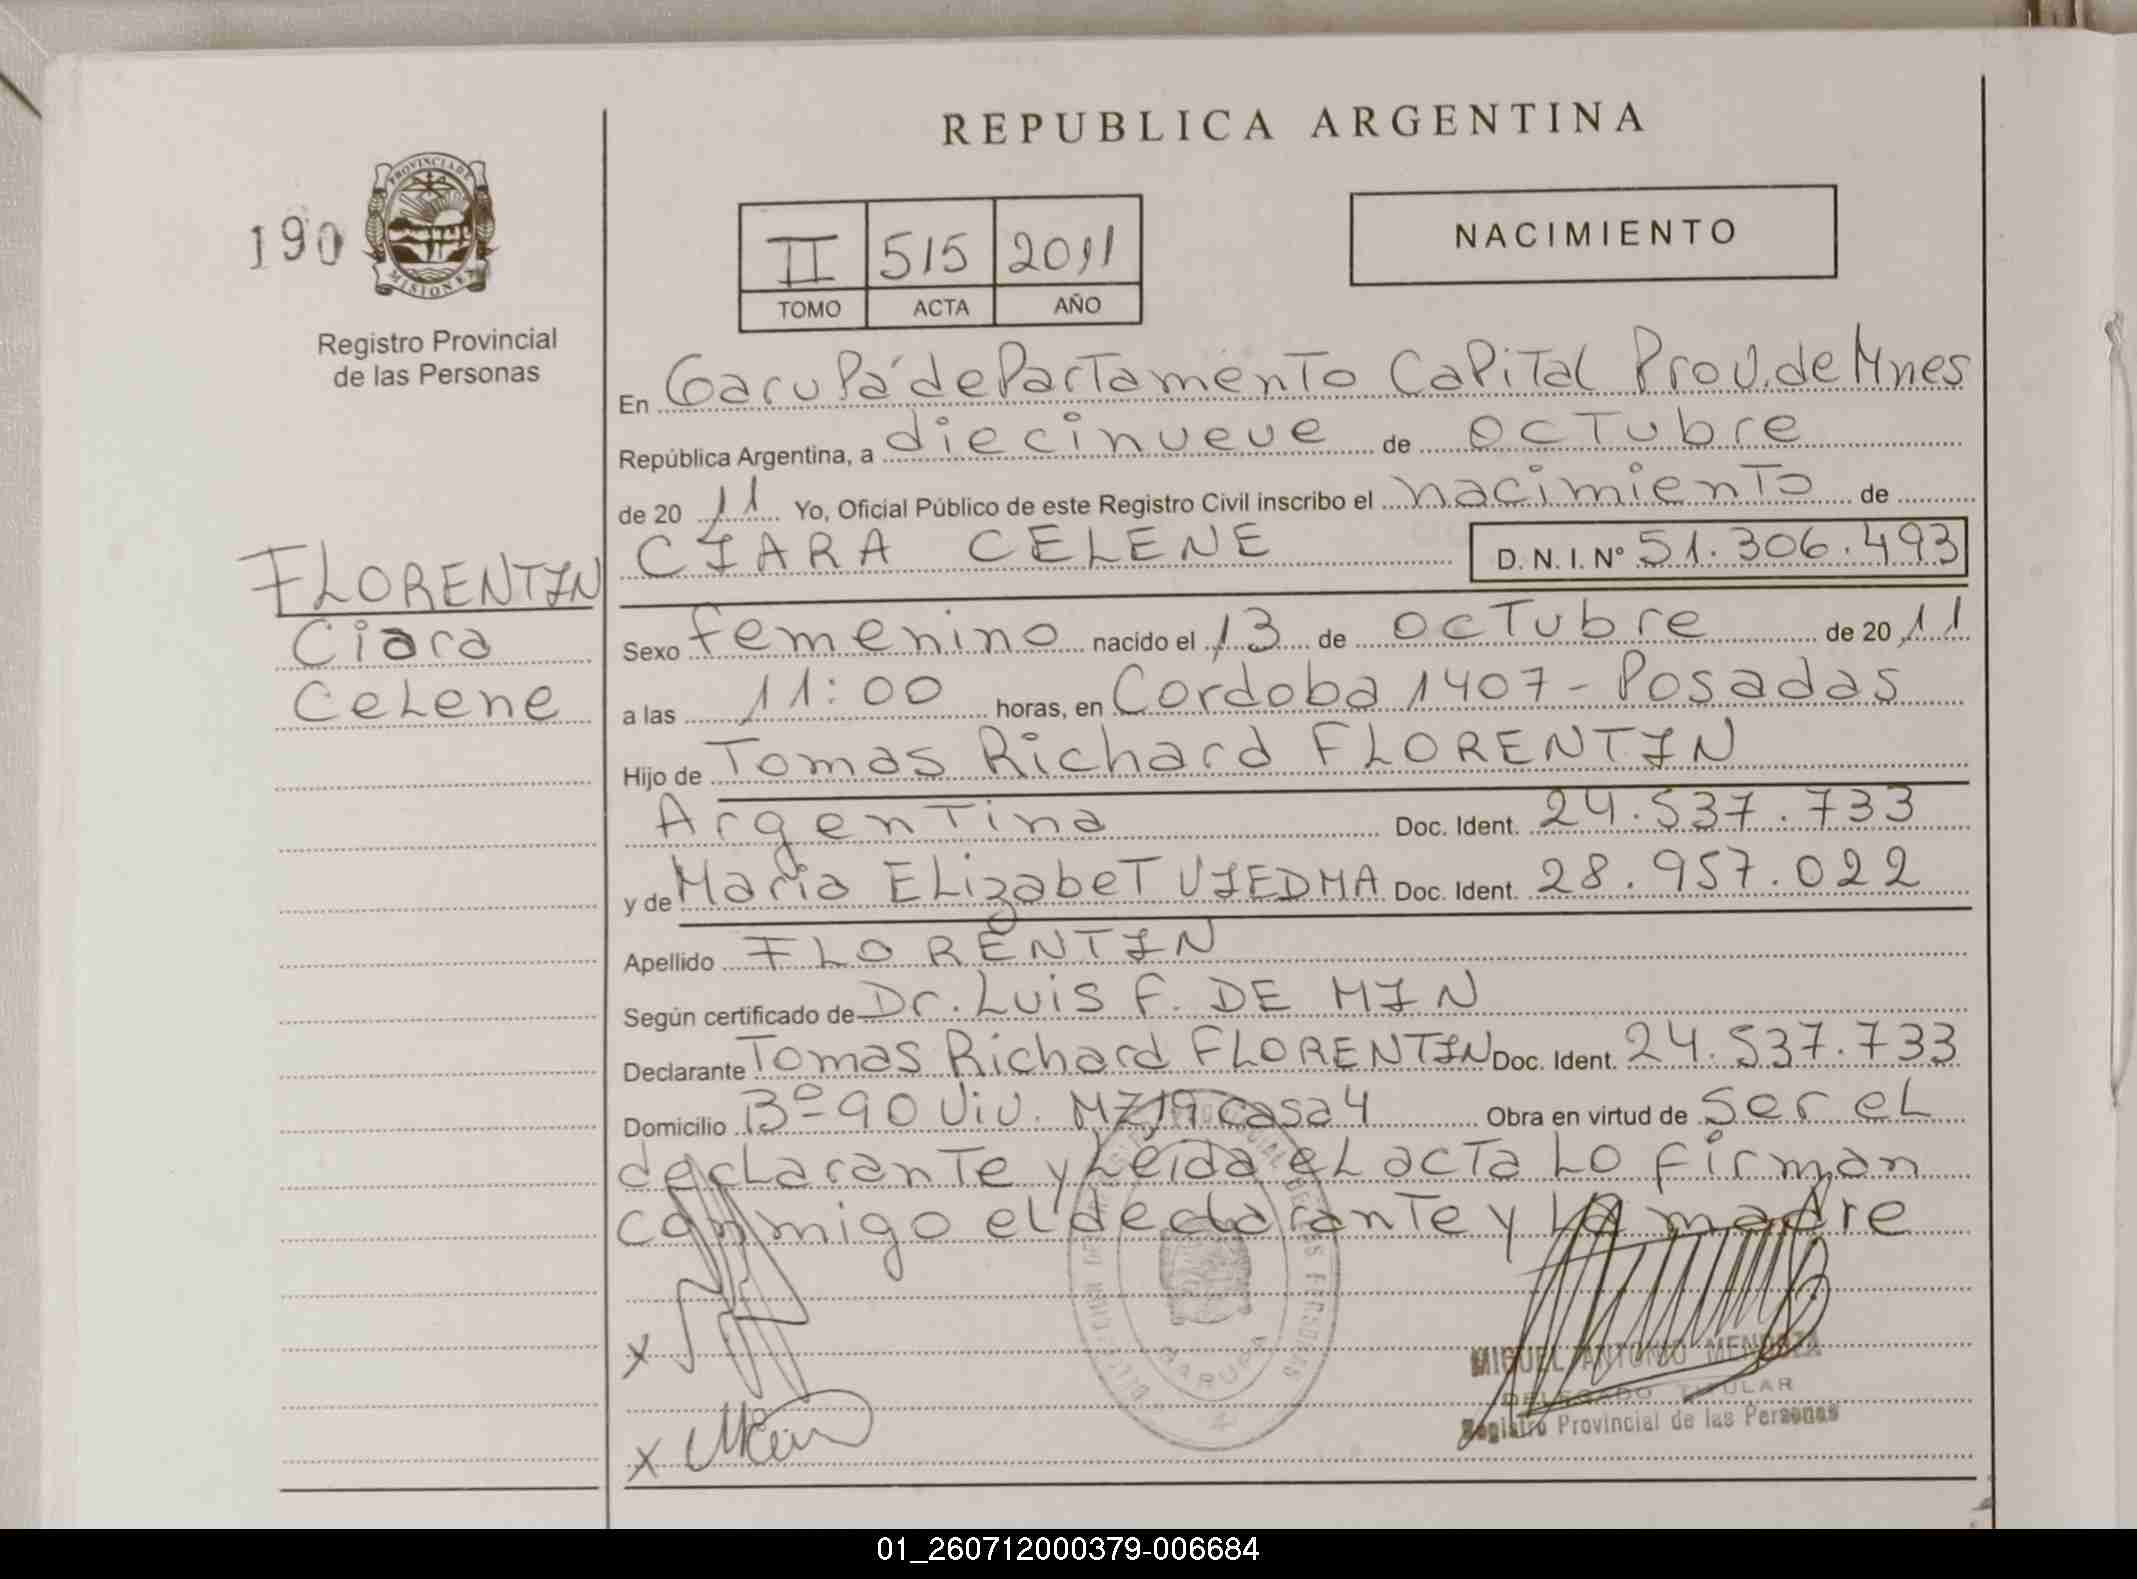 REPUBLICA ARGENTINA
190
PROVINCIA DE
MISIONES
Registro Provincial
de las Personas
II 515 2011
TOMO ACTA AÑO
NACIMIENTO
En Garupá departamento Capital Prov. de Mnes
República Argentina, a diecinueve de octubre
de 20 11 Yo, Oficial Público de este Registro Civil inscribo el nacimiento de
CIARA CELENE D. N. I. Nº 51.306.493
FLORENTIN
Ciara
Celene
Sexo femenino nacido el 13 de octubre de 20 11
a las 11:00 horas, en Cordoba 1407 - Posadas
Hijo de Tomas Richard FLORENTIN
Argentina Doc. Ident. 24.537.733
y de Maria Elizabet VIEDMA Doc. Ident. 28.957.022
Apellido FLORENTIN
Según certificado de Dr. Luis F. DE MIN
Declarante Tomas Richard FLORENTIN Doc. Ident. 24.537.733
Domicilio Bº 90 Viv. MZ 19 casa 4 Obra en virtud de ser el
declarante y Leida el acta lo firman
conmigo el declarante y la madre
GARUPA
x
x
MIGUEL ANTONIO MENDOZA
DELEGADO TITULAR
Registro Provincial de las Personas
01_260712000379-006684